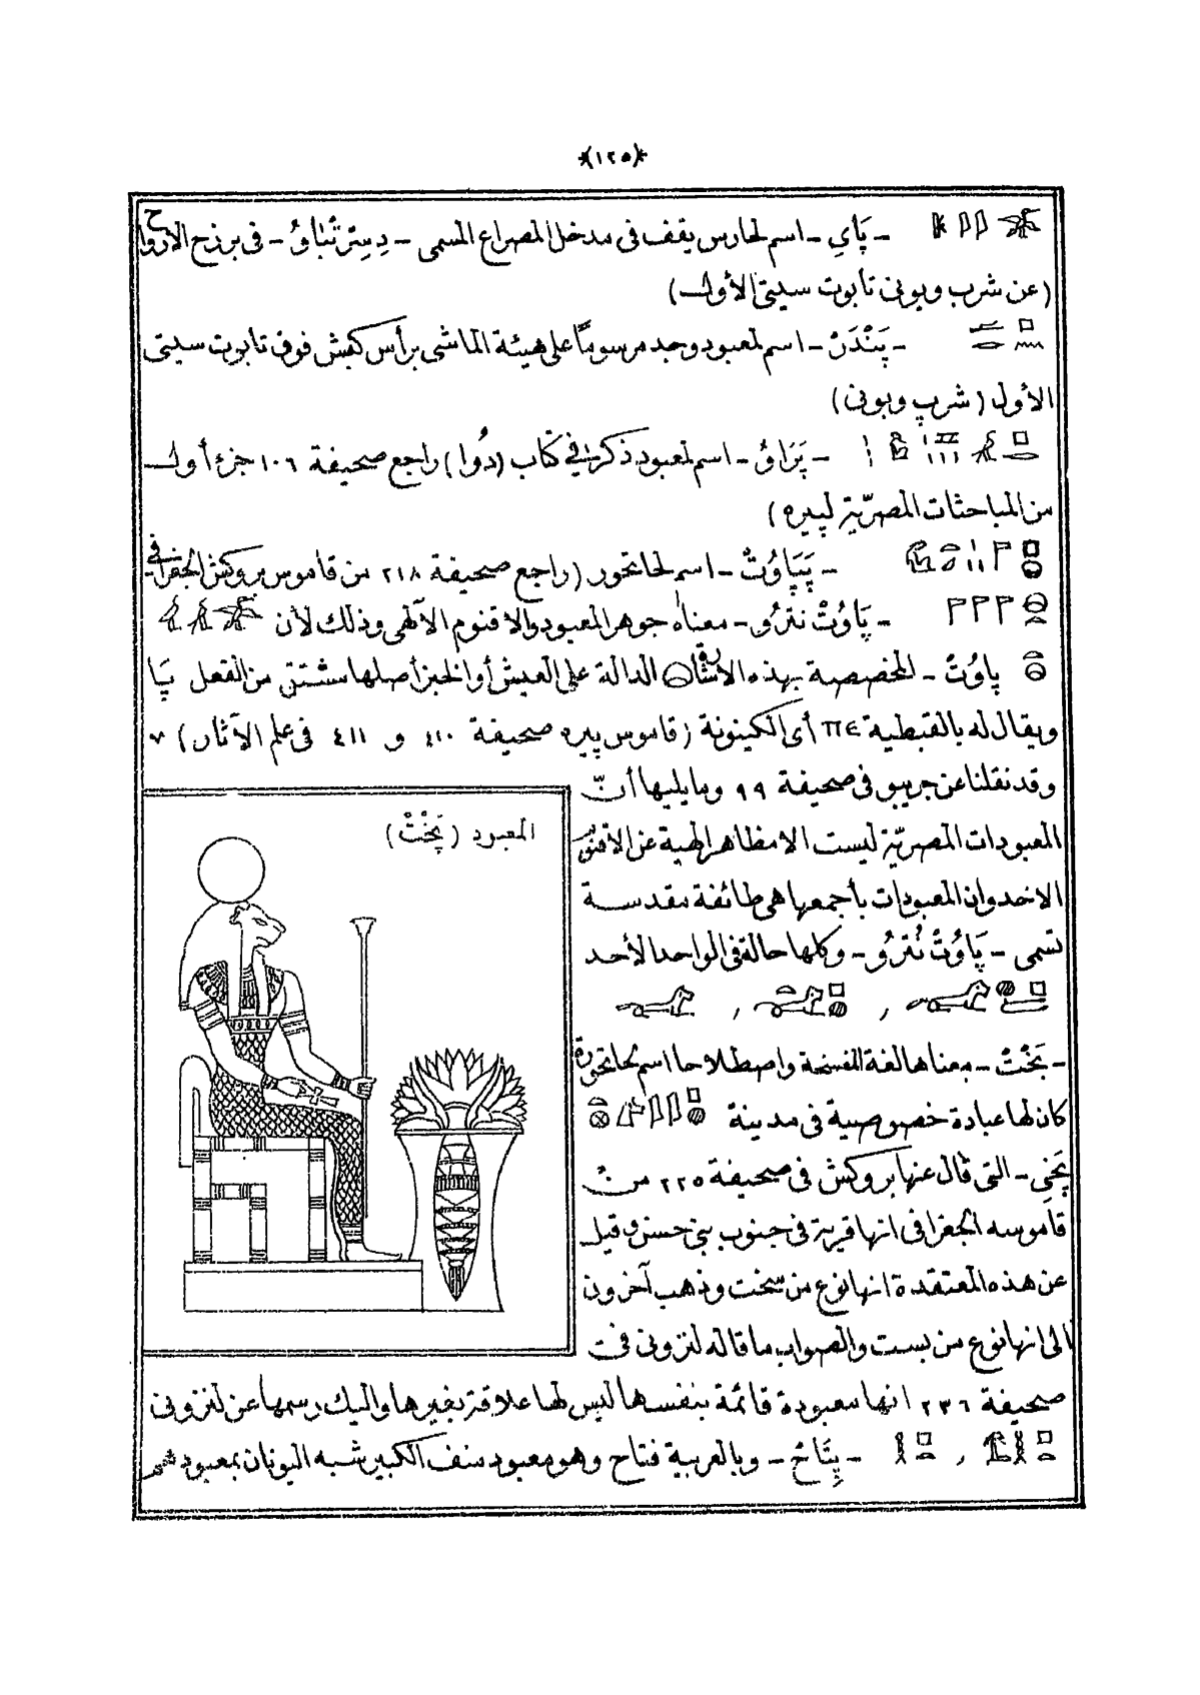 *(١٢٥)*
- پَأيِ - اسم لحارس يقف فى مدخل المصراع المسمى - دِسِرْتْبَاوُ - فى برزح الارواح
(عن شرب وبونى تابوت سيتى الأول)
- پَنْدَرْ - اسم لمعبود وجد مرسوماً على هيئة الماشى برأس كبش فوق تابوت سيتى
الأول (شرب وبونى)
- پَرَاوُ - اسم لمعبود ذكر فى كتاب (دُوا) راجع صحيفة ١٠٦ جزء أول
من المباحثات المصريّة لپيره)
- پَپَاوُتْ - اسم لحاتحور (راجع صحيفة ٢١٨ من قاموس بروكش الجغرافى
- پَاوُتْ نترُو - معناه جوهر المعبود والاقنوم الآلهى وذلك لأن
پاوُتْ - المخصصة بهذه الاشارة الدالة على العيش أوالخبز أصلها مشتق من الفعل پَا
ويقال له بالقبطية ⲡⲉ أى الكينونة (قاموس پيره صحيفة ٤١٠ و ٤١١ فى علم الآثار)
وقد نقلنا عن جريبو فى صحيفة ٩٩ وما يليها أنّ
المعبودات المصريّة ليست الا مظاهر الهية عن الاقنوم
الاحد وان المعبودات بأجمعها هى طائفة مقدسة
تسمى - پَاوُتْ نُترُو - وكلها حالة فى الواحد الأحد
المعبود (پَخْتْ)
- پَخْتْ - معناها لغة المفسخة واصطلاحا اسم لحاتحور
كان لها عبادة خصوصية فى مدينة
پَخِى - التى قال عنها بروكش فى صحيفة ٢٢٥ من
قاموسه الجغرافى انها قرية فى جنوب بنى حسن وقيل
عن هذه المعتقدة انها نوع من سخت وذهب آخرون
الى انها نوع من بست والصواب ما قاله لنزونى فى
صحيفة ٢٣٦ انها معبودة قائمة بنفسها ليس لها علاقة بغيرها واليك رسمها عن لنزونى
- پِتَاحْ - وبالعربية فتاح وهو معبود منف الكبير شبه اليونان بمعبودهم